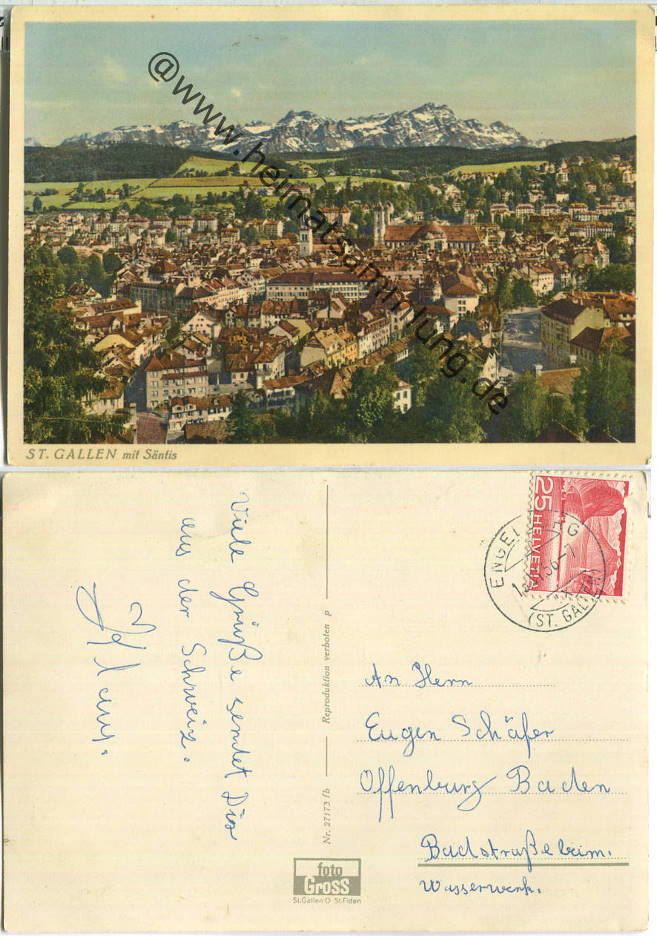 @www.heimatsammlung.de
ST. GALLEN mit Säntis
Viele Grüße sendet Dir
aus der Schweiz.
Nr. 27173 fb
Reproduktion verboten P
25 HELVETIA
(ST. GALLEN)
An Herrn
Eugen Schäfer
Offenburg Baden
Badstraße beim.
Wasserwerk.
foto
GROSS
St. Gallen O St. Fiden